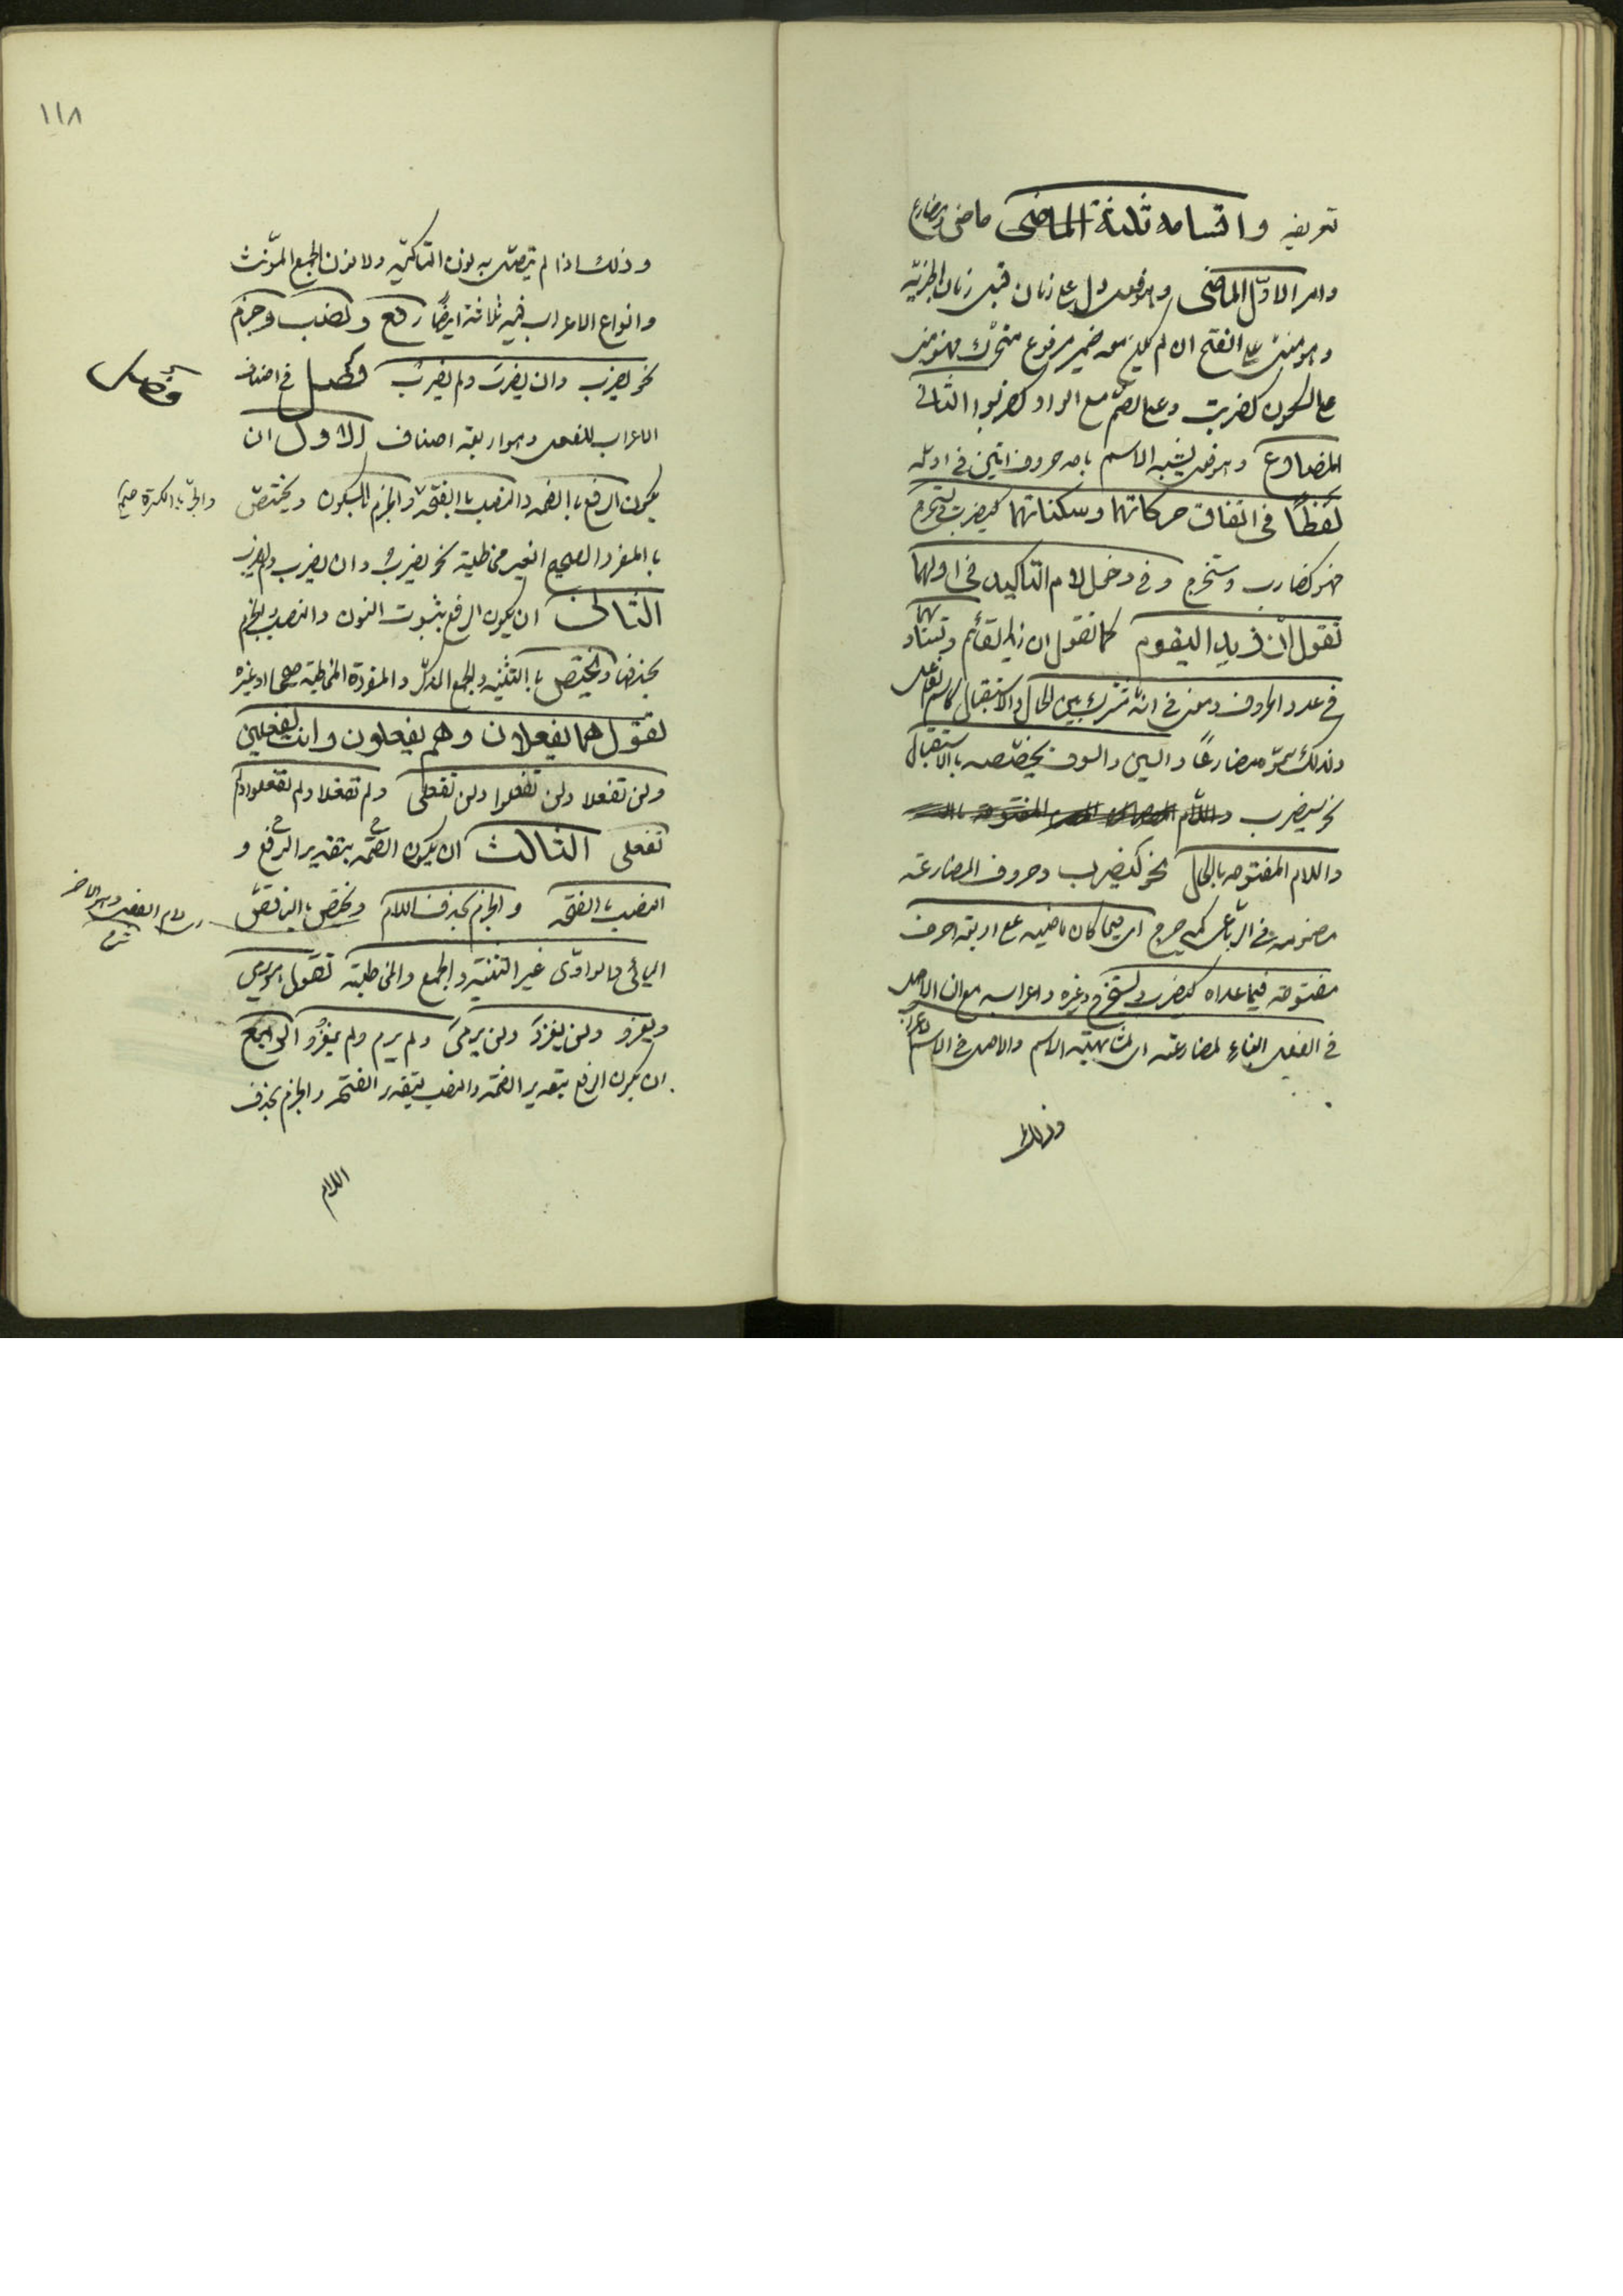 تعريفه واقسامه ثلثة الماضى ماضى ومضارع
وامر الاوّل الماضى وهو فعل دل على زمان قبل زمان اخبريّة
وهو مبنى على الفتح ان لم يكن معه ضمير مرفوع متحرّك فهو مبنى
على السكون كضربت وعلى الضمّ مع الواو كضربوا الثانى
المضارع وهو فعل يشبه الاسم باحد حروف اتين فى اوله
لفظًا فى اتفاق حركاتهما وسكناتهما كيضرب ويستخرج
فهو كضارب ومستخرج وفى دخول لام التاكيد فى اولهما
تقول انّ زيدا ليقوم كما تقول ان زيدا لقائم وتساويهما
فى عدد الحروف ومعنى فى انّه مشترك بين الحال والاستقبال كاسم الفاعل
ولذلك سمّى مضارعًا والسين والسوف يخصّصه بالاستقبال
نحو سيضرب واللّام
واللام المفتوحه بالحال نحو ليضرب وحروف المضارعة
مضمومه فى الرباعى كيدحرج اى فيما كان ماضيه على اربعة احرف
مفتوحة فيما عداه كيضرب ويستخرج وغيره واعرابه مع ان الاصل
فى الفعل البناء لمضارعته اى لمشابهته الاسم والاصل فى الاسم الاعراب
وذلك
١١٨
وذلك اذا لم يتصل به نون التاكيد ولا نون الجمع المؤنث
وانواع الاعراب فيه ثلاثة ايضًا رفع ونصب وجزم
نحو يضرب وان يضرب ولم يضرب فصل فى اصناف
فصل
الاعراب للفعل وهو اربعة اصناف الاول ان
يكون الرفع باالضمه والنصب باالفتحة والجزم باالسكون ويختصّ
والجرّ باالكسرة
باالمفرد الصحيح الغير مخاطبة نحو يضرب وان يضرب ولم يضرب
الثانى ان يكون الرفع بثبوت النون والنصب والجزم
بحذفها ويختص باالتثنيه والجمع المذكّر والمفردة المخاطبة صحيحا او غيره
تقول هما يفعلان وهم يفعلون وانت تفعلين
ولن تفعلا ولن تفعلوا ولن تفعلى ولم تفعلا ولم تفعلوا ولم
تفعلى الثالث ان يكون الضمّه بتقدير الرفع و
النصب باالفتحه والجزم بحذف اللام ويختص باالناقص
اليائى والواوّى غير التثنية والجمع والمخاطبة تقول هو يرمى
ويغزو ولن يغزوَ ولن يرمىَ ولم يرم ولم يغزُ الرابع
ان يكون الرفع بتقدير الضمّه والنصب بتقدير الفتحه والجزم بحذف
اللام